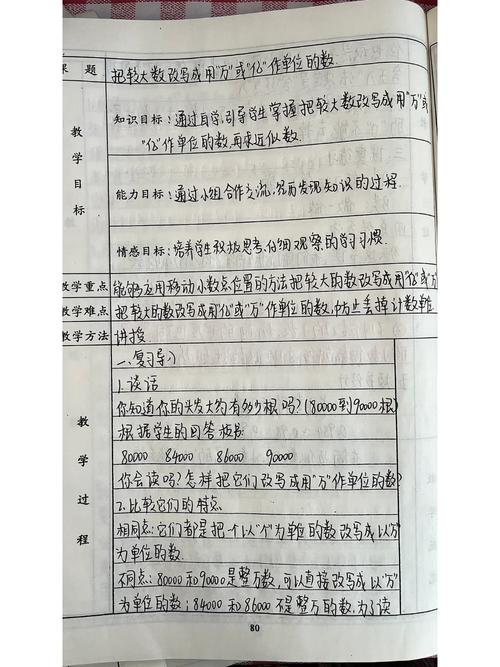 课 题 把较大数改写成用"万"或"亿"作单位的数.
教学目标
知识目标: 通过自学,引导学生掌握把较大数改写成用"万"或
"亿"作单位的数,再求近似数.
能力目标: 通过小组合作交流,经历发现知识的过程.
情感目标: 培养学生积极思考,仔细观察的学习习惯.
教学重点 能够应用移动小数点位置的方法把较大的数改写成用"亿"或"万"
教学难点 把较大的数改写成用"亿"或"万"作单位的数,防止丢掉计数单位
教学方法 讲授
教学过程
一、复习导入
1. 谈话
你知道你的头发大约有多少根吗?(80000到90000根)
根据学生的回答板书:
80000 84000 86000 90000
你会读吗?怎样把它们改写成用"万"作单位的数?
2. 比较它们的特点.
相同点: 它们都是把一个以"个"为单位的数改写成以"万"
为单位的数.
不同点: 80000和90000是整万数,可以直接改写成以"万"
为单位的数; 84000和86000不是整万的数,为了读
80